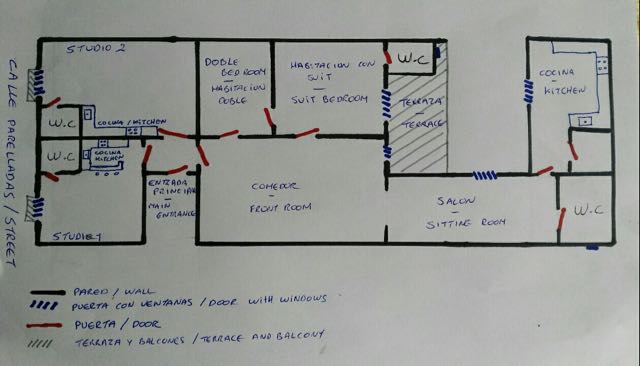 CALLE PARELLADAS / STREET
STUDIO 2
W.C
COCINA / KITCHEN
W.C
COCINA
KITCHEN
STUDIO 1
ENTRADA
PRINCIPAL
MAIN
ENTRANCE
DOBLE
BEDROOM
HABITACION
DOBLE
HABITACION CON
SUIT
SUIT BEDROOM
W.C
TERRAZA
TERRACE
COMEDOR
FRONT ROOM
SALON
SITTING ROOM
COCINA
KITCHEN
W.C
PARED / WALL
PUERTA CON VENTANAS / DOOR WITH WINDOWS
PUERTA / DOOR
TERRAZA Y BALCONES / TERRACE AND BALCONY